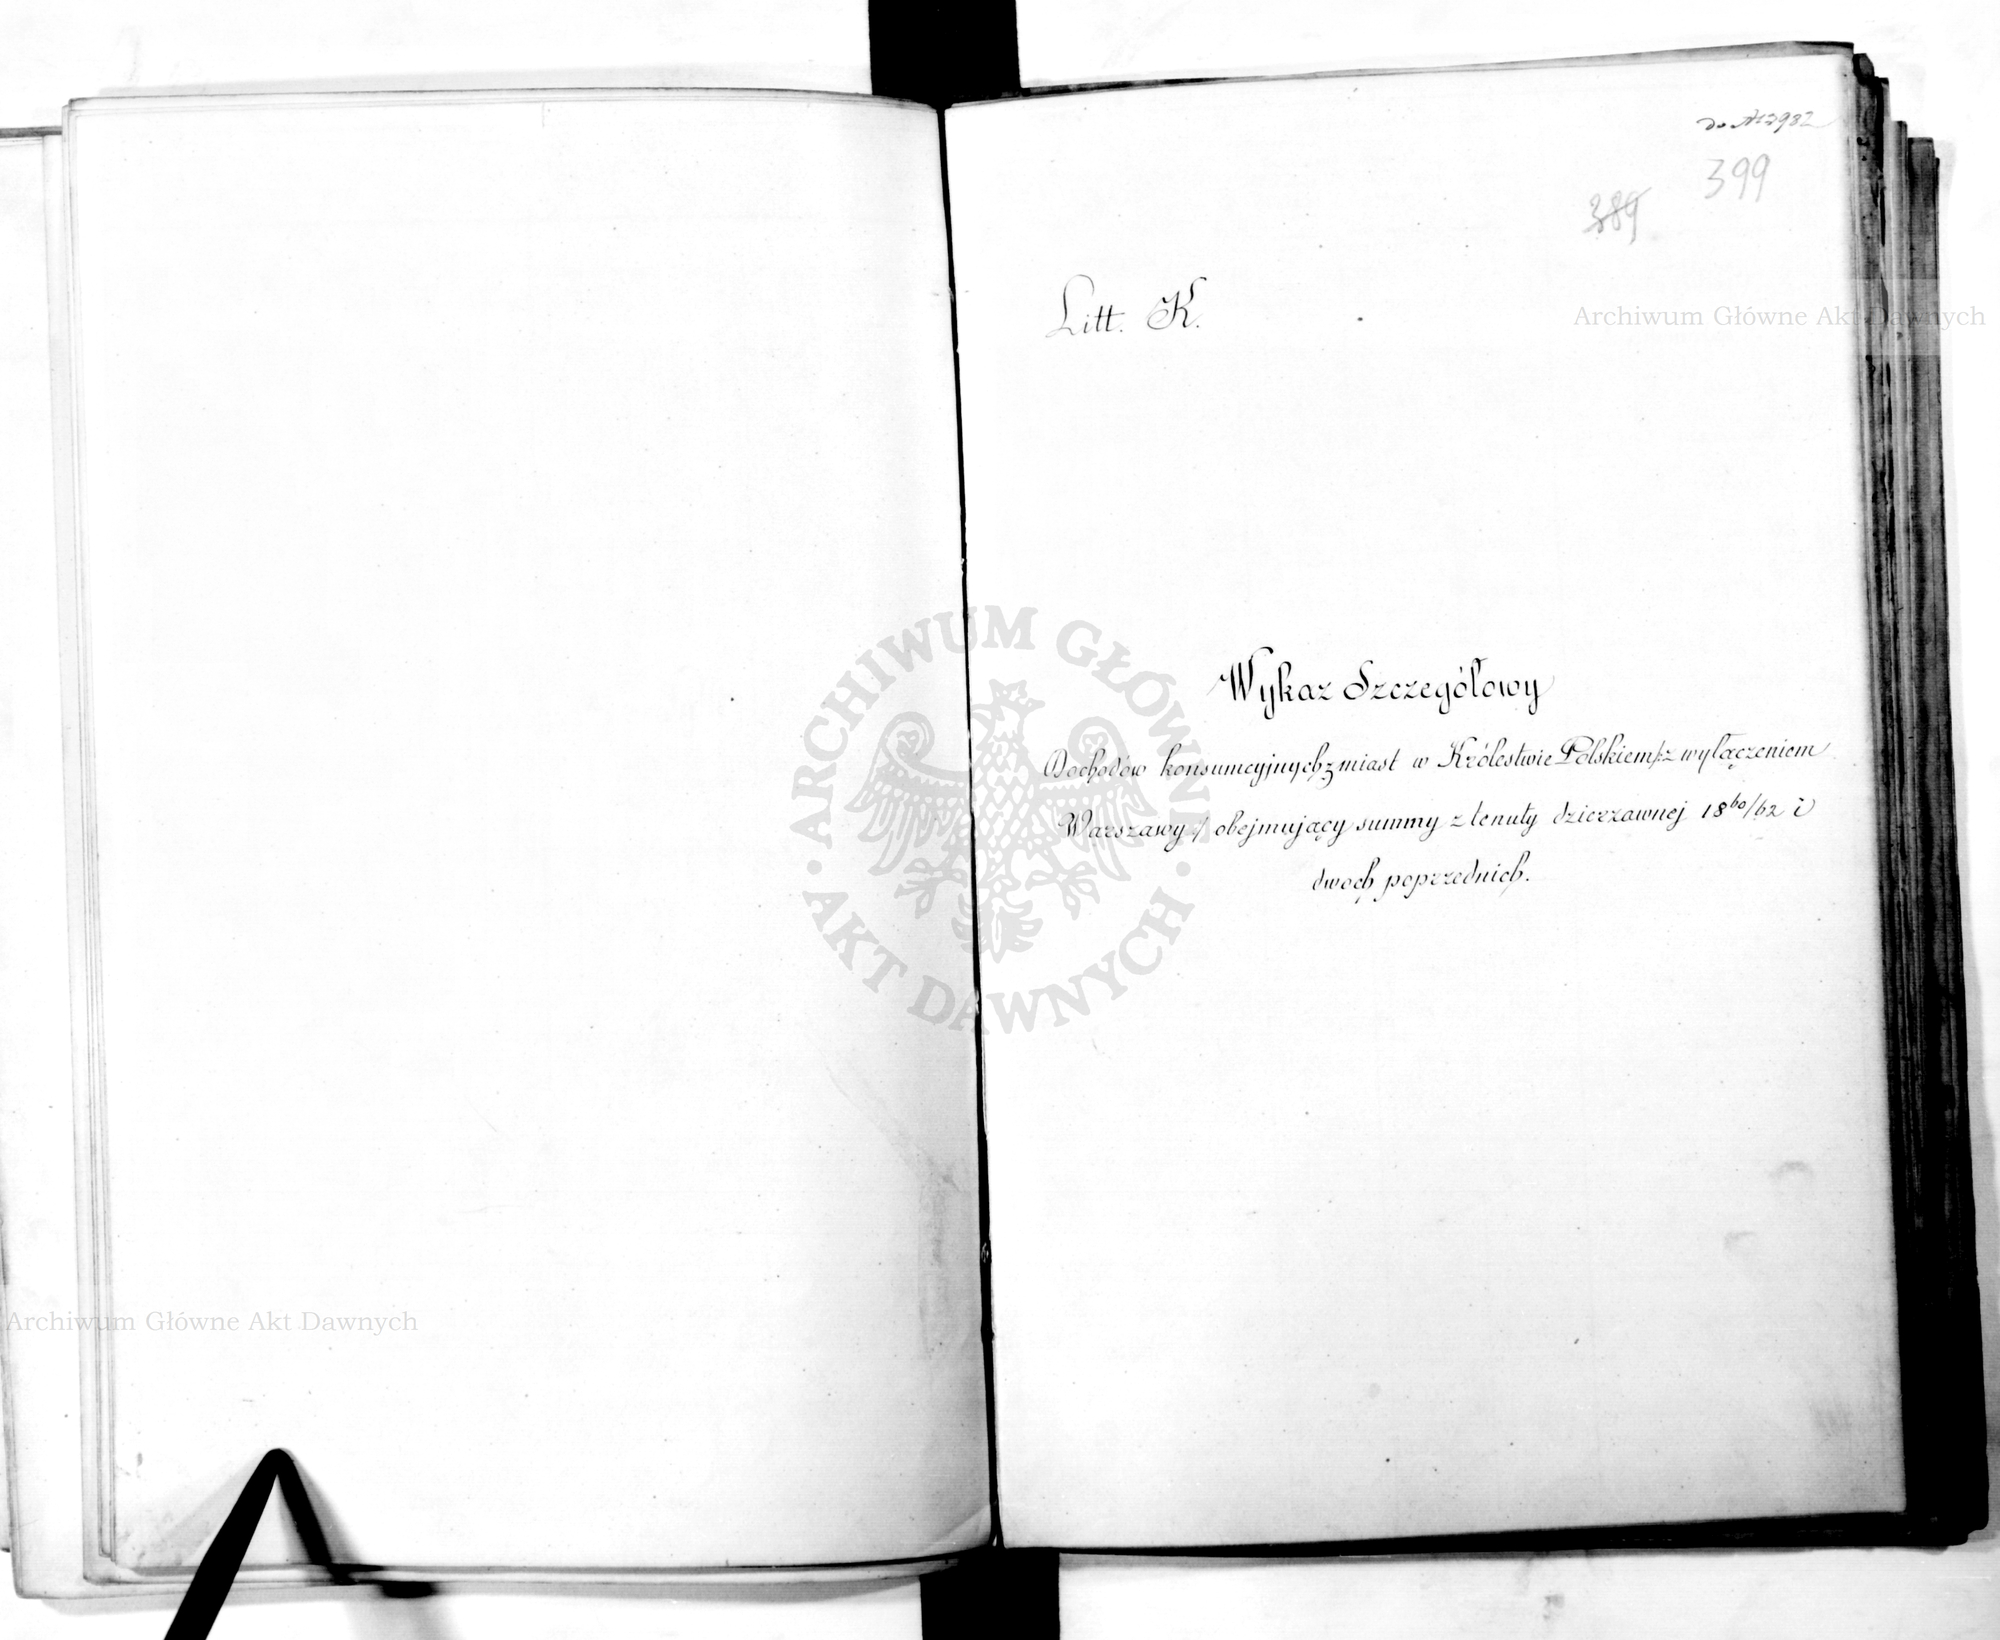 do № 3982
399
389
Litt. K.
Archiwum Główne Akt Dawnych
ARCHIWUM GŁÓWNE AKT DAWNYCH
Wykaz Szczegółowy
Dochodów konsumcyjnych z miast w Królestwie Polskiem /: z wyłączeniem
Warszawy :/ obejmujący summy z tenuty dzierzawnej 18⁶⁰/62 i
dwoch poprzednich.
Archiwum Główne Akt Dawnych